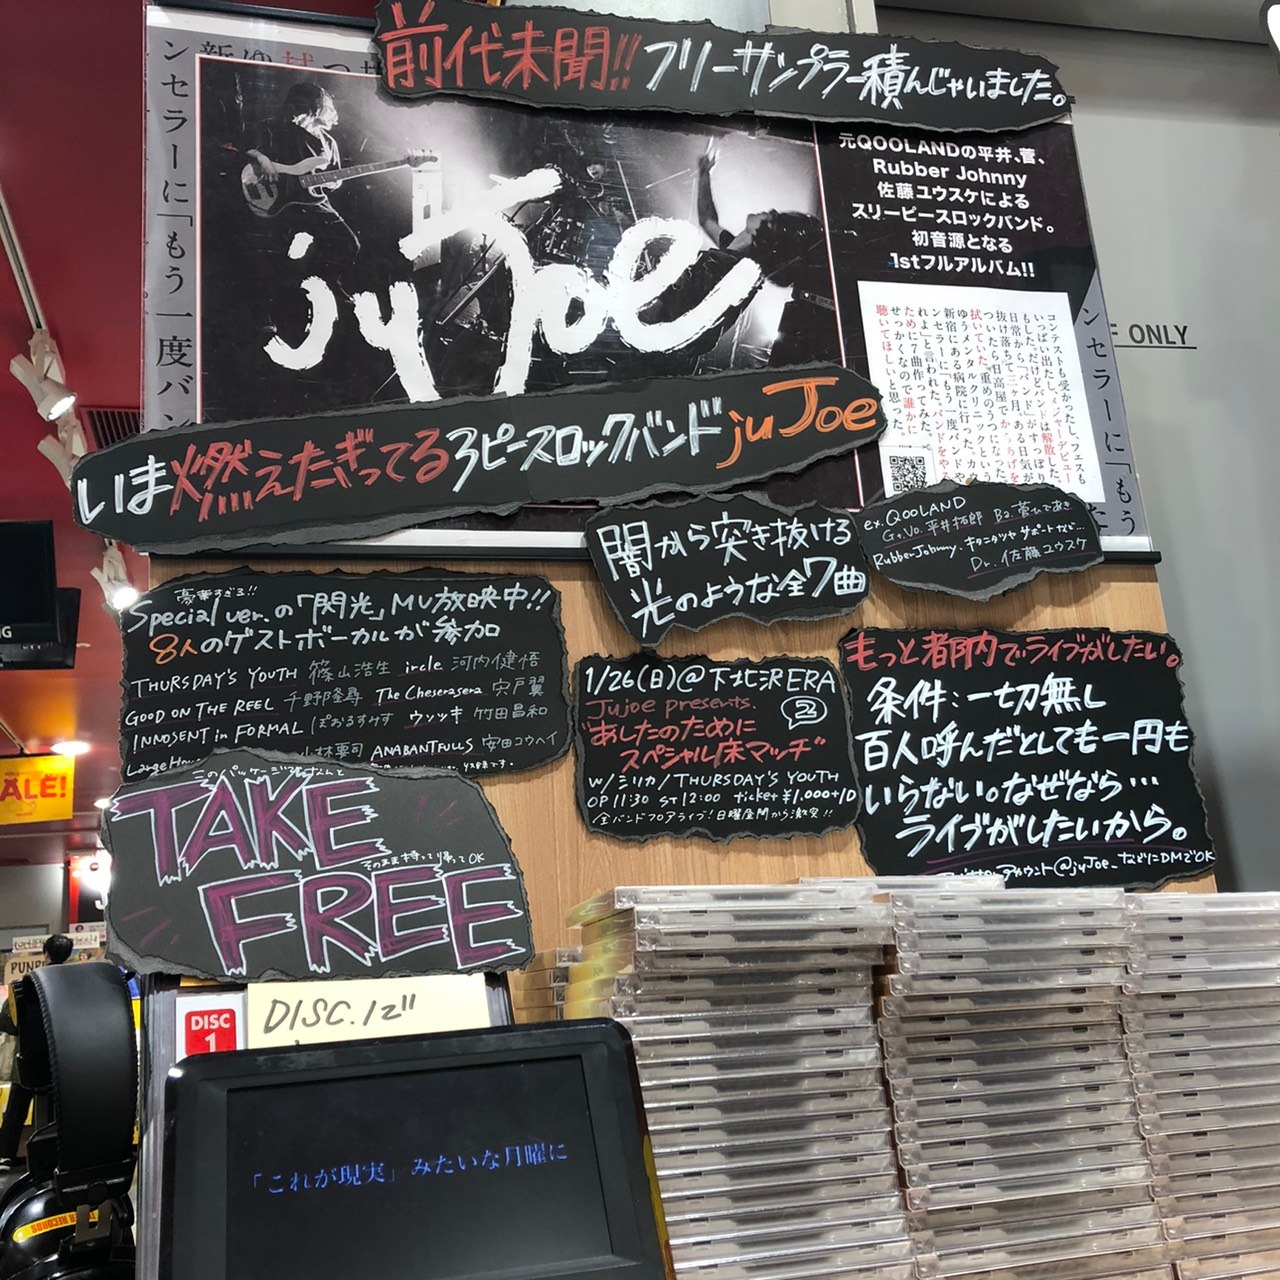 前代未聞!! フリーサンプラー積んじゃいました。
ンセラーに「もう一度バン
juJoe
元QOOLANDの平井、菅、
Rubber Johnny
佐藤ユウスケによる
スリーピースロックバンド。
初音源となる
1stフルアルバム!!
コンテストも受かったしフェスも
いっぱい出たしメジャーデビュー
もした。だけどバンドは解散した。
日常から「バンド」がすっぽり
抜け落ちて三ヶ月。ある日気が
ついたら日高屋でからあげを
拭いていた。重めのうつになった。
メンタルクリニックという
新宿にある病院に行った。カウ
ンセラーに「もう一度バンドや
れよ」と言われ、バンドをやる
ために7曲作ってみた。
せっかくなので誰かに
聴いてほしいと思った。
ンセラーに「もう
ONLY
いま燃えたぎってる3ピースロックバンド juJoe
闇から突き抜ける
光のような全7曲
ex.QOOLAND
G.Vo.平井拓郎 Ba.菅ひであき
RubberJohnny. キタニタツヤ サポートなど…
Dr. 佐藤ユウスケ
豪華すぎる!!
Special ver.の「閃光」MV放映中!!
8人のゲストボーカルが参加
THURSDAY'S YOUTH 篠山浩生 ircle 河内健悟
GOOD ON THE REEL 千野隆尋 The Cheserasera 宍戸翼
INNOSENT in FORMAL ぽおるすみす ウソツキ 竹田昌和
ANABANTFULLS 安田コウヘイ
1/26(日)@下北沢ERA
Jujoe presents.
"あしたのために2
スペシャル床マッチ"
w/ミリカ/THURSDAY'S YOUTH
OP 11:30 ST 12:00 ticket ¥1,000+1D
全バンドフロアライブ!日曜昼間から激突!!
もっと都内でライブがしたい。
条件:一切無し
百人呼んだとしても一円も
いらない。なぜなら…
ライブがしたいから。
@juJoe_などにDMでOK
TAKE
そのまま持って帰ってOK
FREE
DISC
1
DISC.12"
「これが現実」みたいな月曜に
TOWER RECORDS